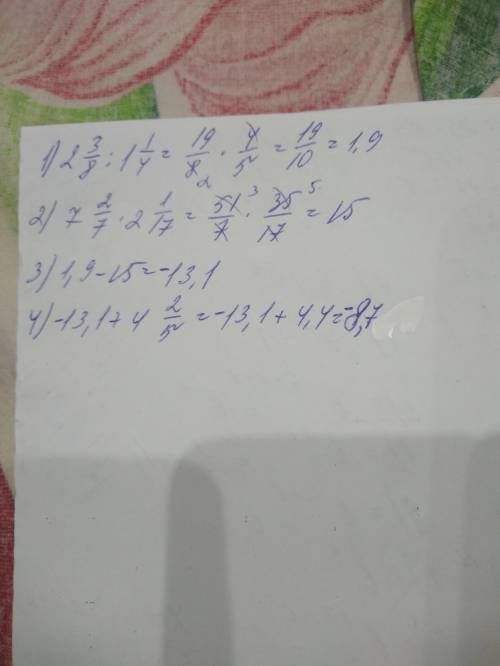 1) 2 3/8 : 1 1/4 = 19/8 2 · 4/5 = 19/10 = 1,9
2) 7 2/7 · 2 1/17 = 51/7 3 · 35/17 5 = 15
3) 1,9 - 15 = -13,1
4) -13,1 + 4 2/5 = -13,1 + 4,4 = -8,7